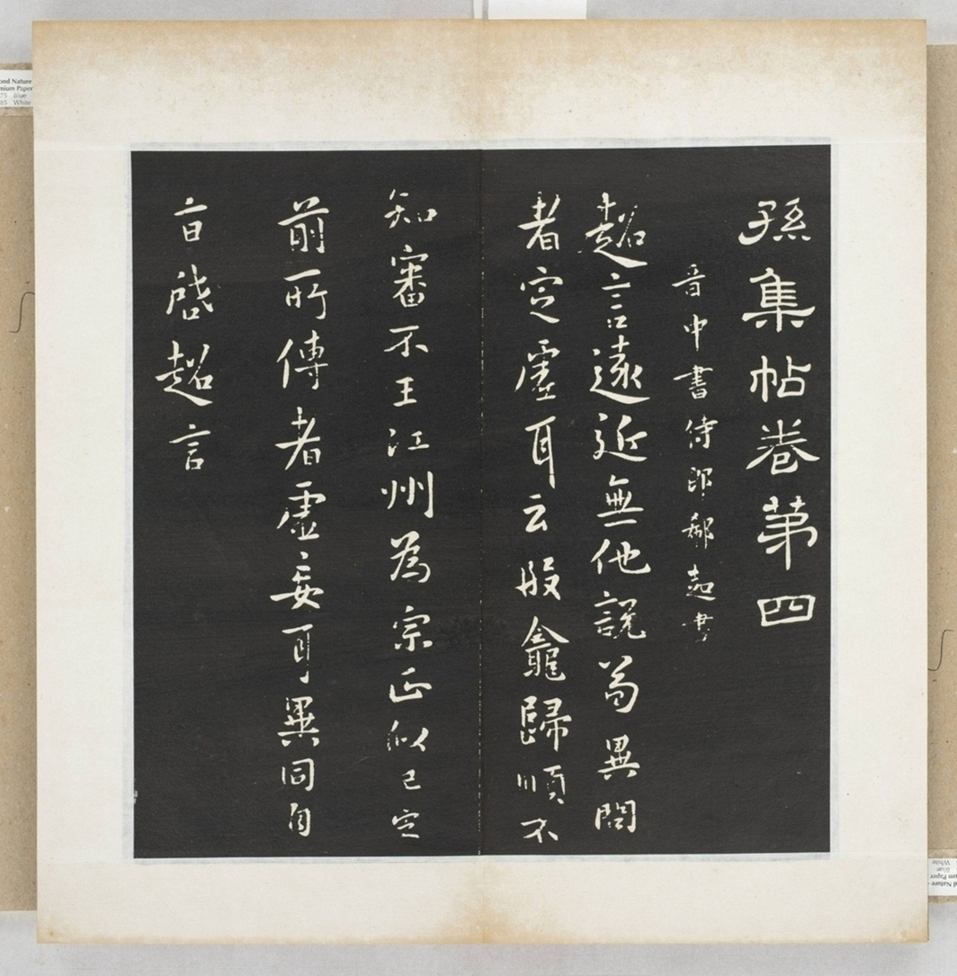 孫集帖卷第四
晉中書侍郎郗超書
超言遠近無他說為異問
者定虛耳云殷龕歸順不
知審不王江州為宗正似已定
前所傳者虛妄耳異同自
白啓超言
ond Nature
mium Paper
White